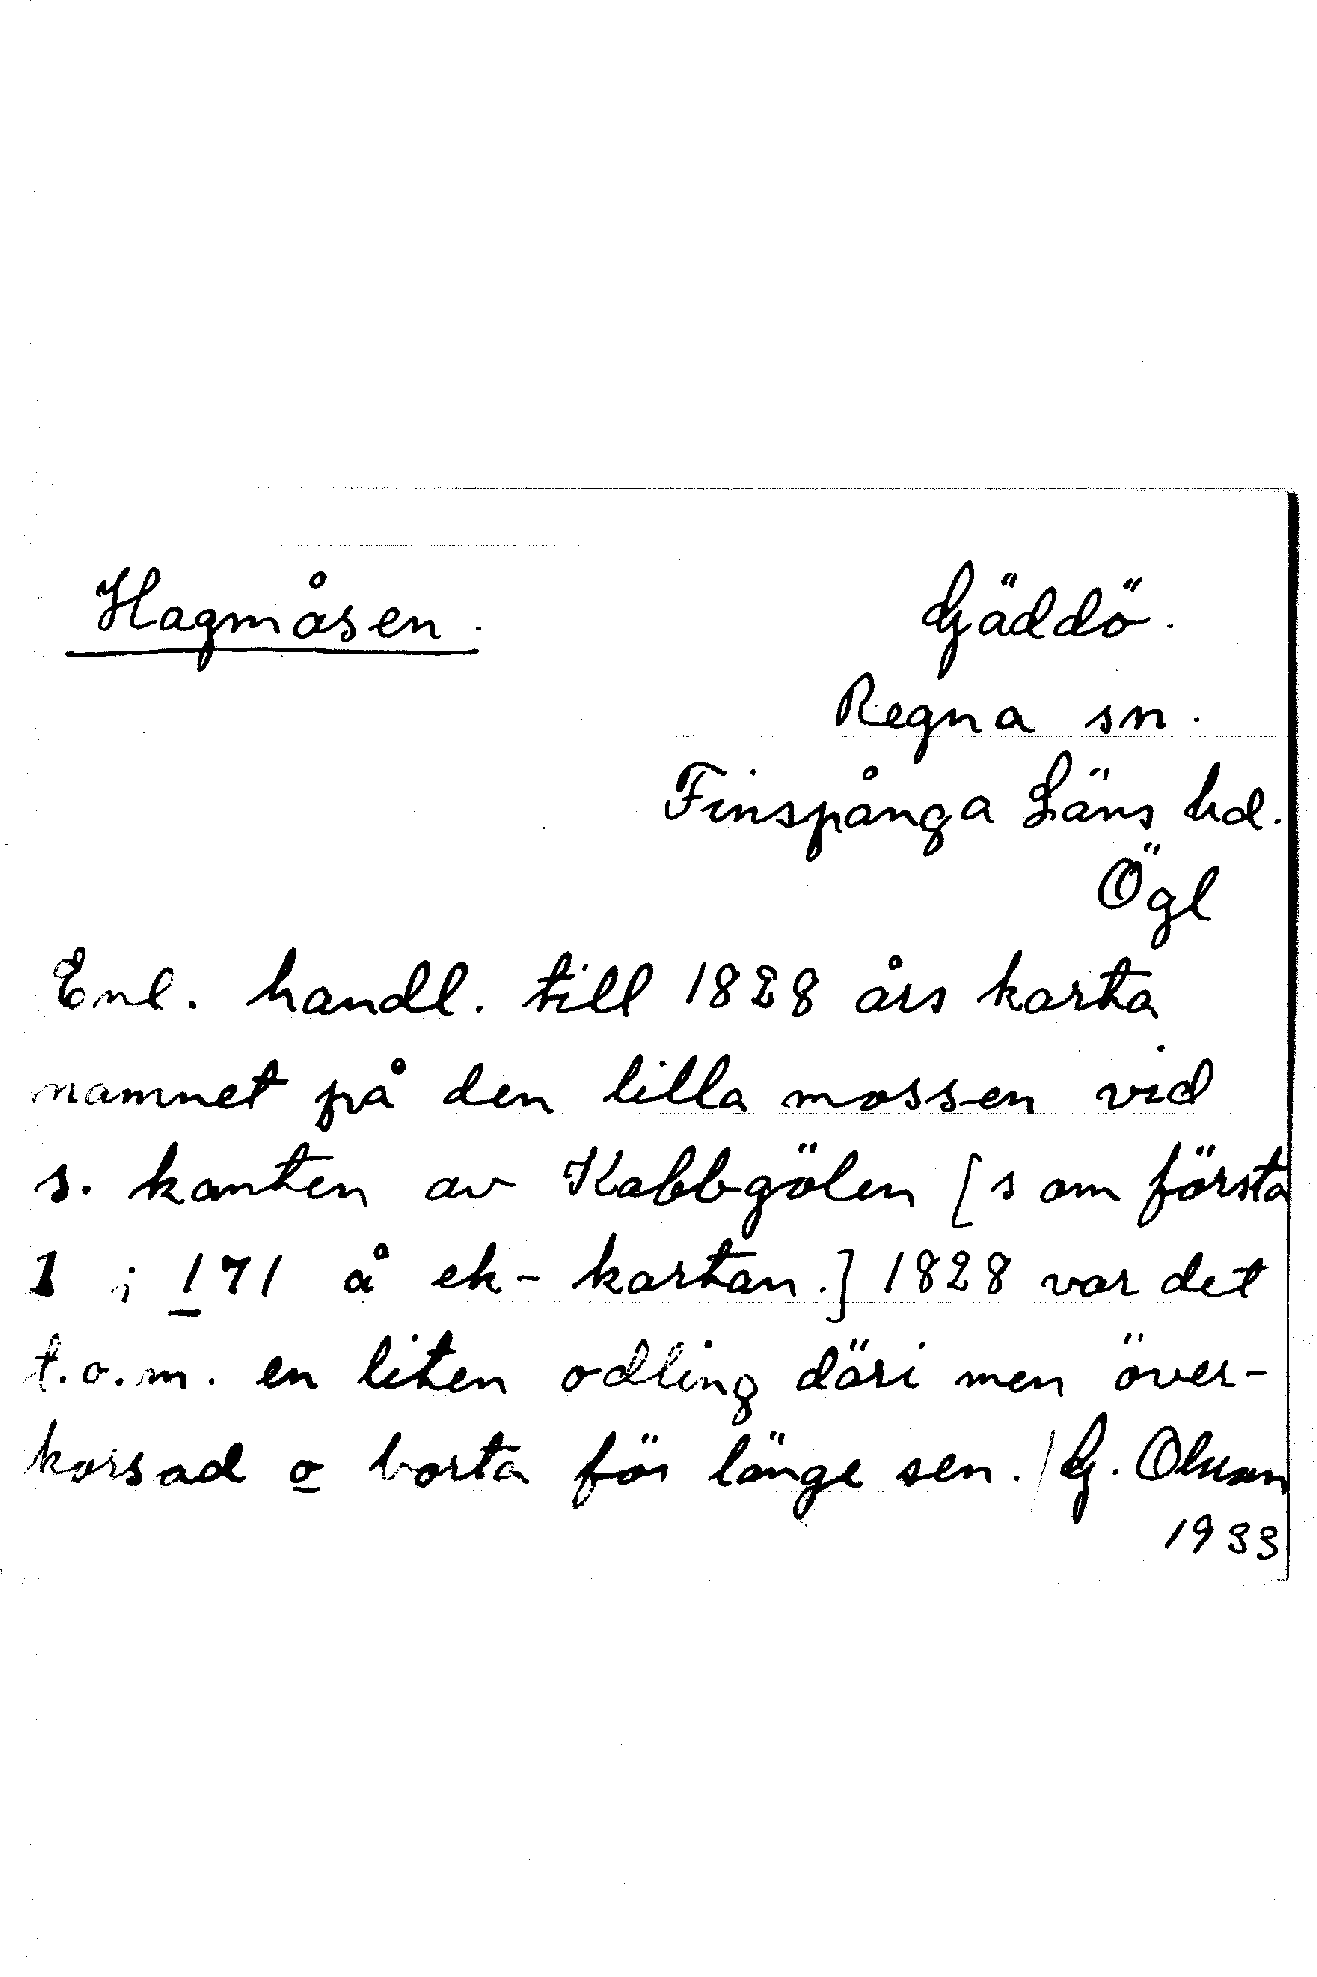 Hagmåsen.
Gäddö.
Regna sn.
Finspånga Läns hd.
Ögl
Enl. handl. till 1828 års karta
namnet på den lilla mossen vid
s. kanten av Kabbgölen [som första
1 i 171 å ek-kartan.] 1828 var det
t.o.m. en liten odling däri men över-
korsad o borta för länge sen. / G. Olsson
1933